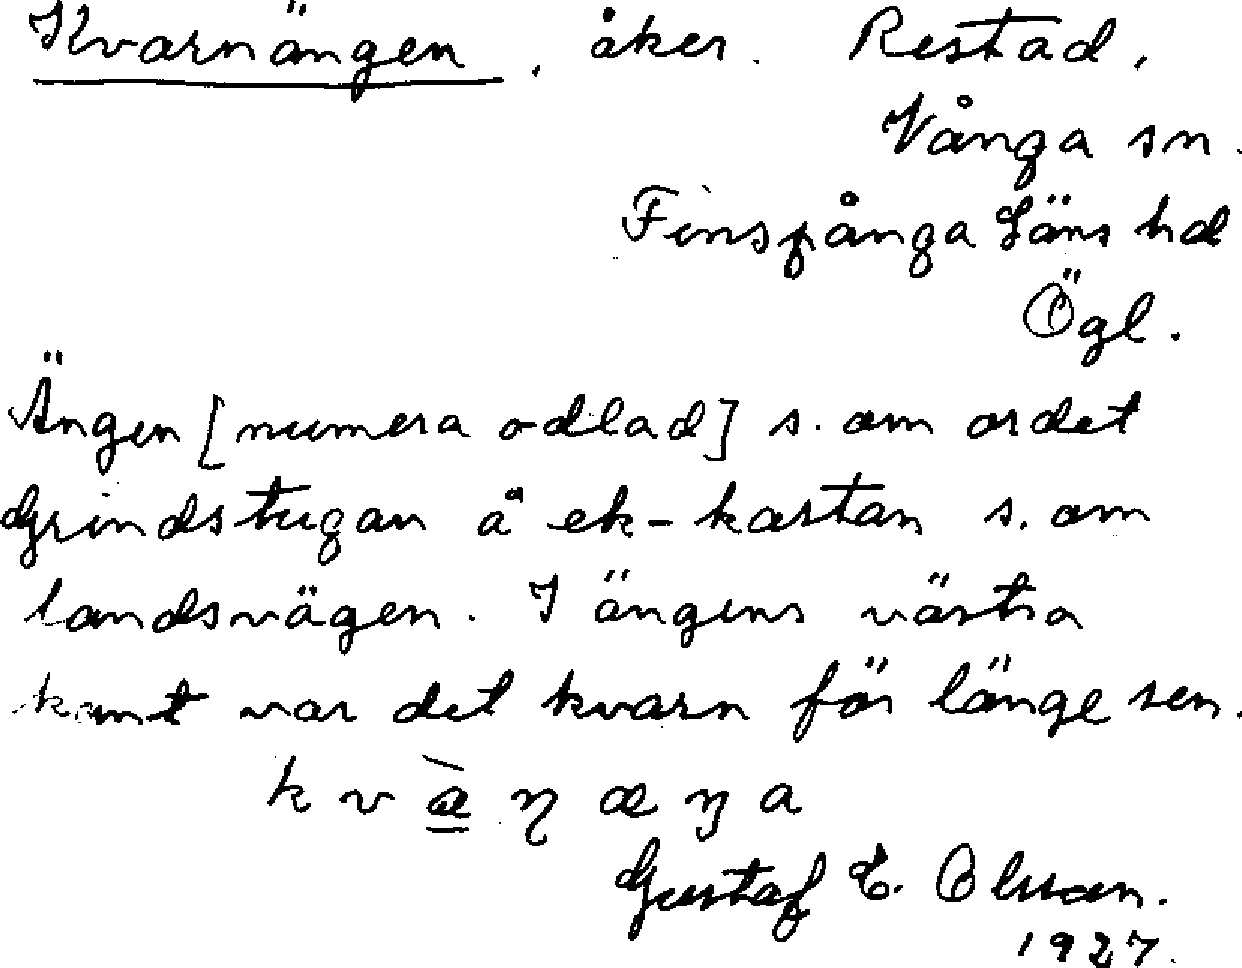 Kvarnängen, åker. Restad,
Vånga sn.
Finspånga Läns hd
Ögl.
Ängen [numera odlad] s. om ordet
Grindstugan å ek-kartan s. om
landsvägen. I ängens västra
kant var det kvarn för länge sen.
k v à̳ ŋ æ ŋ a
Gustaf E. Olsson.
1927.